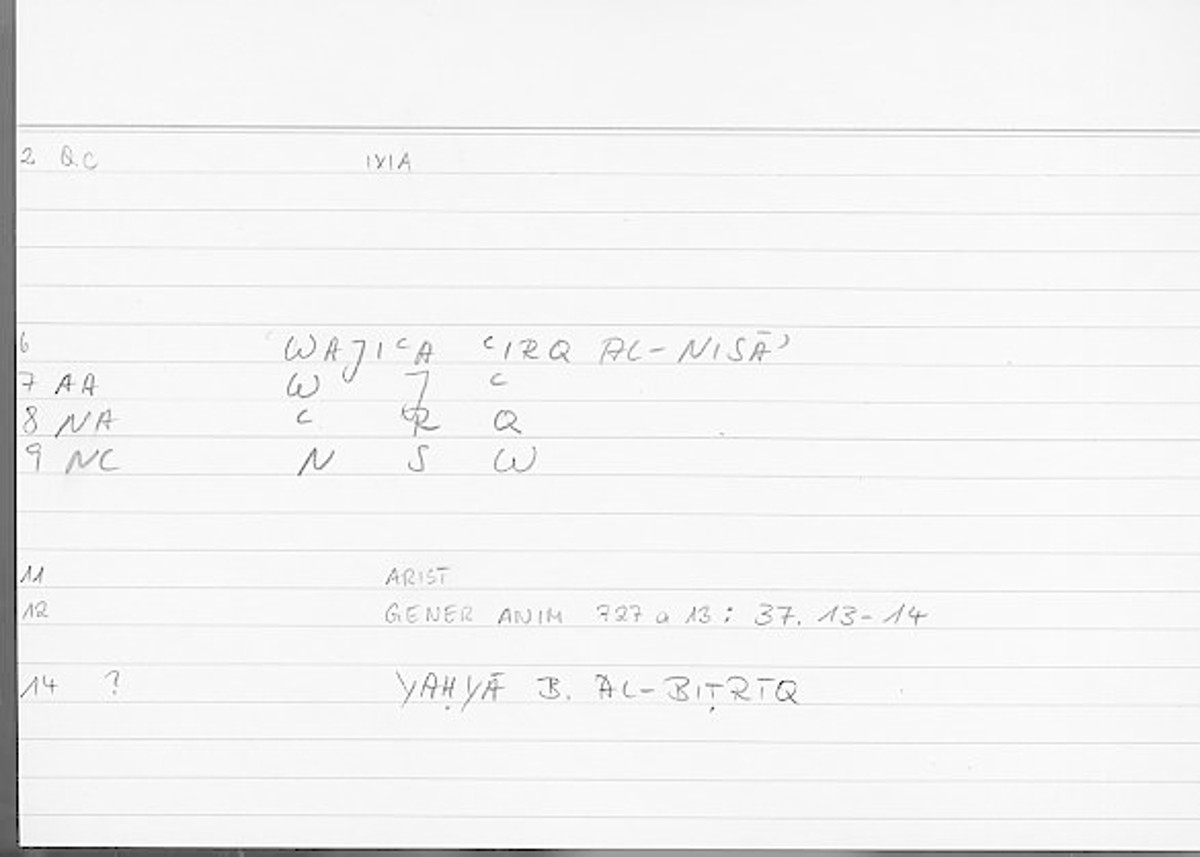 2 QC IXIA
6 WAJIʿA ʿIRQ AL-NISĀʾ
7 AA W J ʿ
8 NA ʿ R Q
9 NC N S W
11 ARIST
12 GENER ANIM 727 a 13 : 37. 13-14
14 ? YAḤYĀ B. AL-BIṬRĪQ